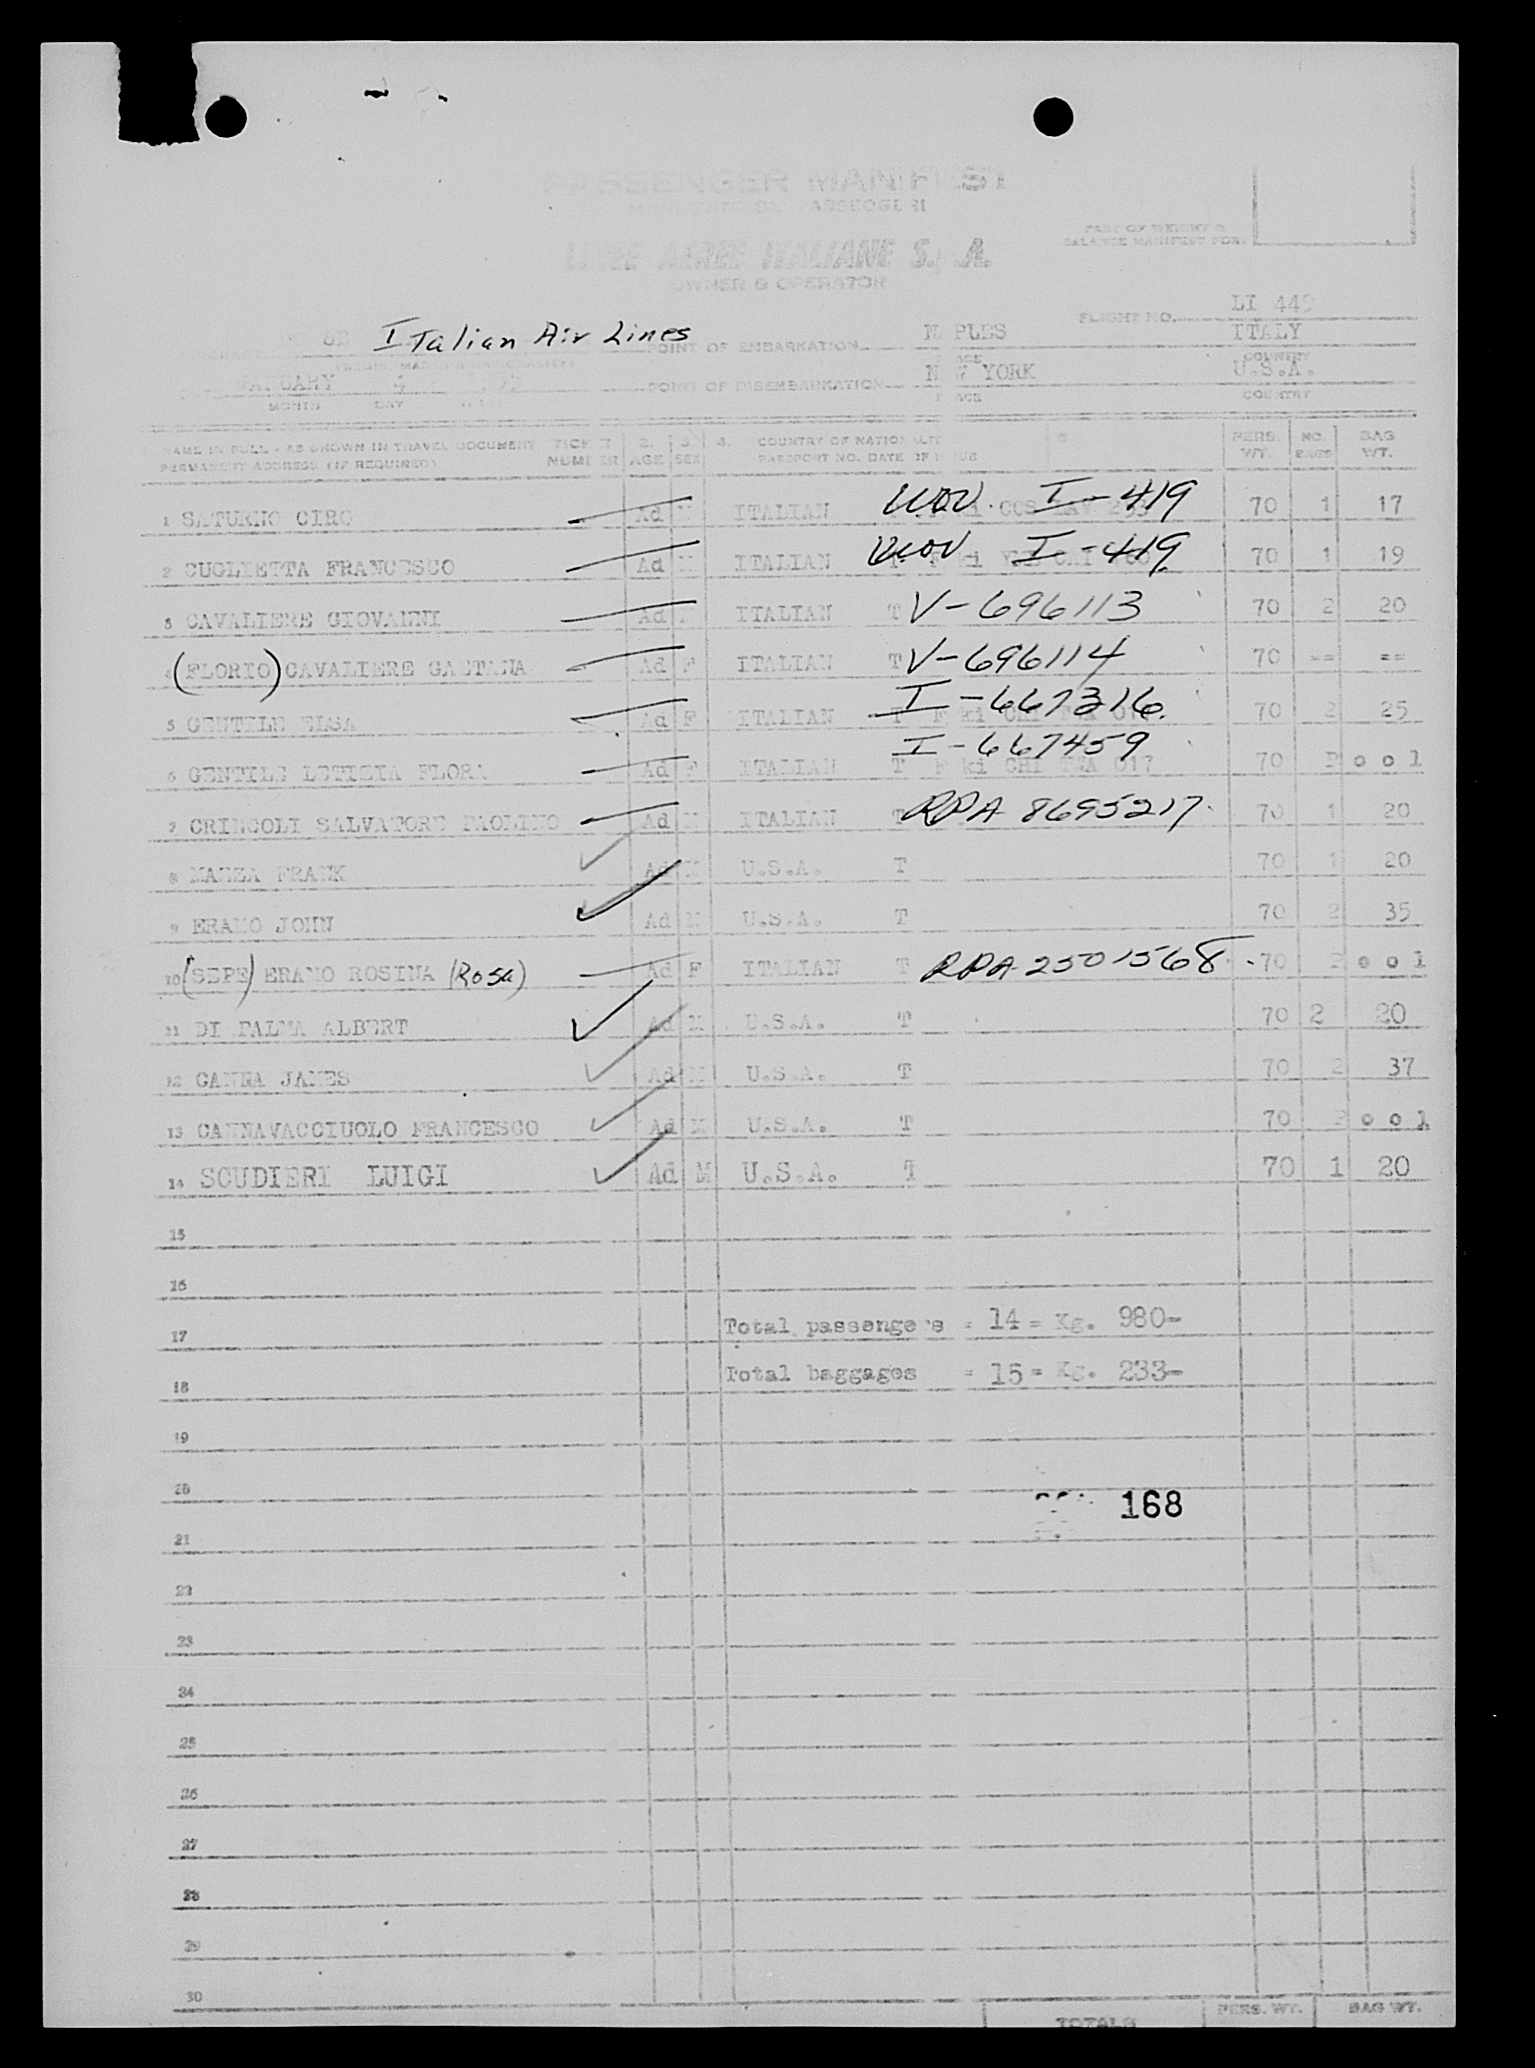 PASSENGER MANIFEST
LINEE AEREE ITALIANE S. A.
OWNER & OPERATOR
PART OF WEIGHT &
BALANCE MANIFEST FOR
FLIGHT NO. LI 449
Italian Air Lines
POINT OF EMBARKATION NAPLES ITALY
PLACE COUNTRY
JANUARY POINT OF DISEMBARKATION NEW YORK U.S.A.
MONTH DAY PLACE COUNTRY
NAME IN FULL - AS SHOWN IN TRAVEL DOCUMENT TICKET 2. 3. 4. COUNTRY OF NATIONALITY PERS. NO. BAG
PERMANENT ADDRESS (IF REQUIRED) NUMBER AGE SEX PASSPORT NO. DATE OF ISSUE WT. BAGS WT.
1 SATURNO CIRO Ad M ITALIAN I-419 70 1 17
2 CUGLIETTA FRANCESCO Ad M ITALIAN I-419 70 1 19
3 CAVALIERE GIOVANNI Ad ITALIAN T V-696113 70 2 20
4 (FLORIO) CAVALIERE GAETANA Ad F ITALIAN T V-696114 70 == ==
5 GENTILE ELSA Ad F ITALIAN T I-667316 70 2 25
6 GENTILE LETIZIA FLORA Ad F ITALIAN T I-667459 70 Pool
7 CRISCOLI SALVATORE PAOLINO Ad M ITALIAN T RPA 8695217 70 1 20
8 FRANK Ad M U.S.A. T 70 1 20
9 ERAMO JOHN Ad M U.S.A. T 70 2 35
10 (SEPE) ERAMO ROSINA (Rosa) Ad F ITALIAN T RPA 2501568 70 Pool
11 DI PALMA ALBERT Ad M U.S.A. T 70 2 20
12 CANNA JAMES Ad M U.S.A. T 70 2 37
13 CANNAVACCIUOLO FRANCESCO Ad M U.S.A. T 70 Pool
14 SCUDIERI LUIGI Ad M U.S.A. T 70 1 20
15
16
17 Total passengers = 14 = Kg. 980-
18 Total baggages = 15 = Kg. 233-
19
20
168
21
22
23
24
25
26
27
28
29
30
PERS. WT. BAG WT.
TOTALS